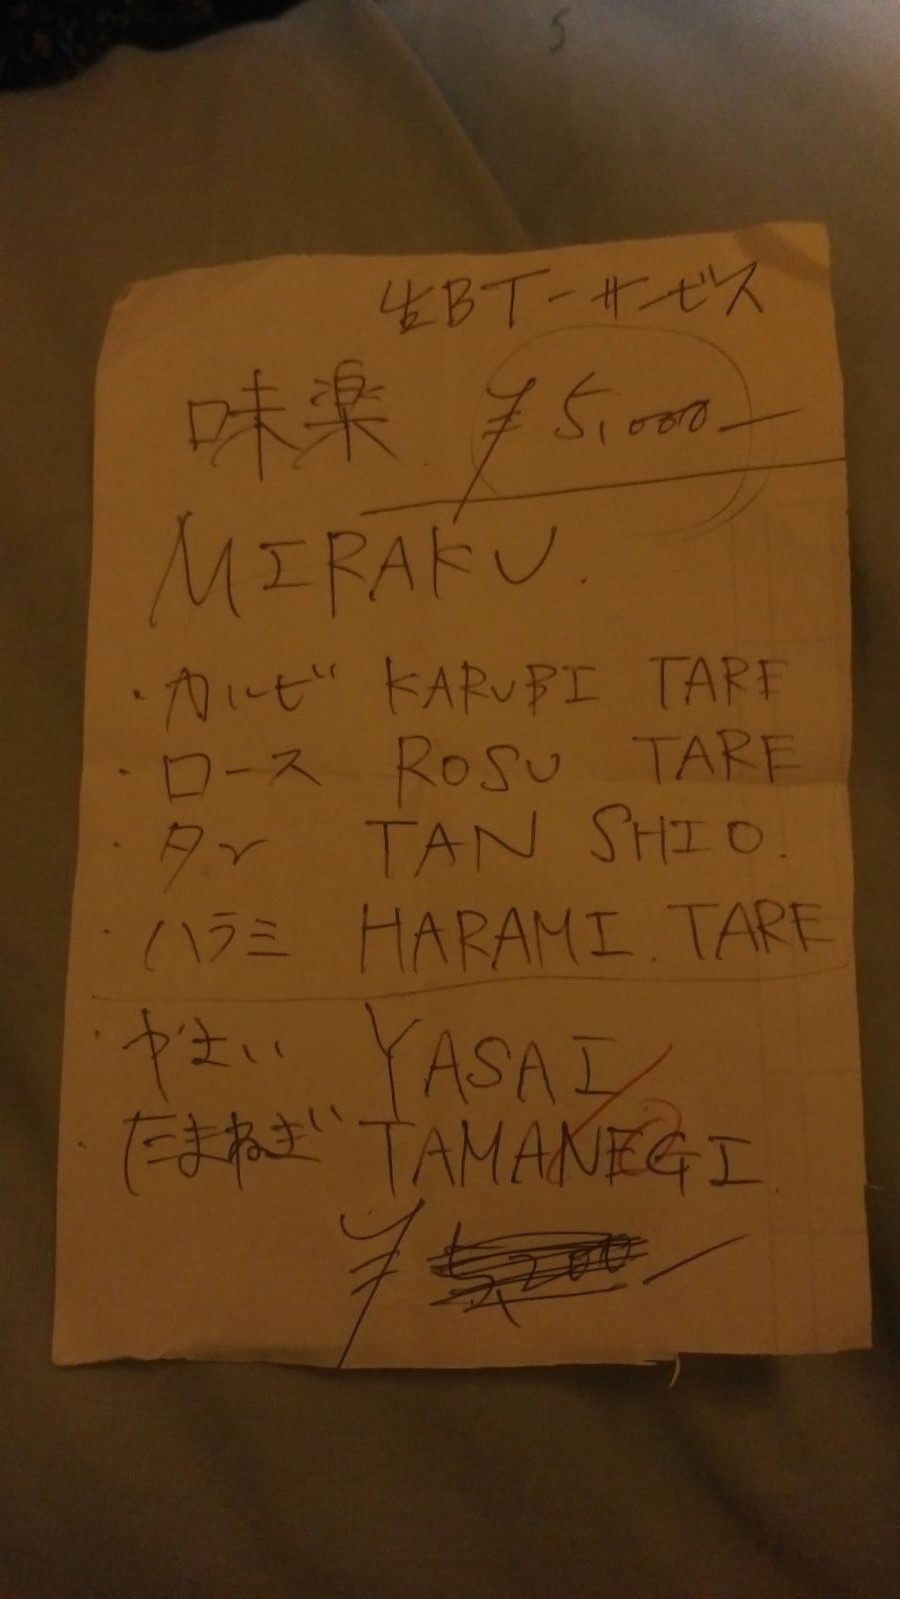 生BT-サービス
味楽 ¥5,000-
MIRAKU.
・カルビ KARUBI TARE
・ロース ROSU TARE
・タン TAN SHIO.
・ハラミ HARAMI. TARE
・やさい YASAI
・たまねぎ TAMANEGI
¥ 5,200-